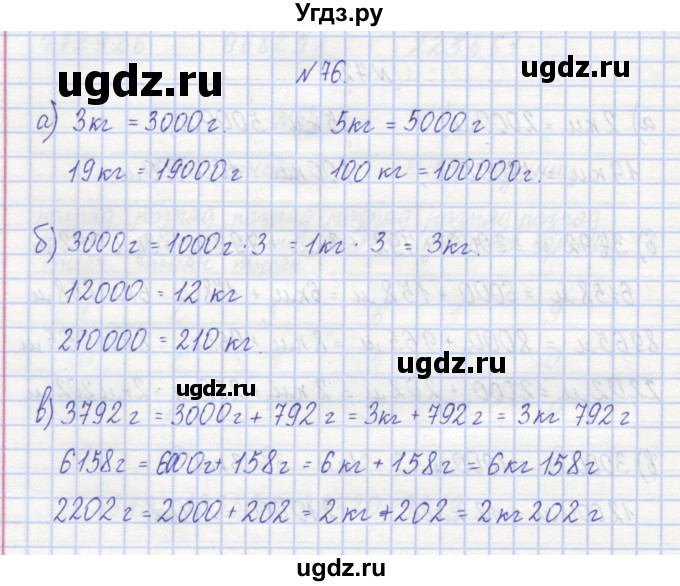 Угдз.ру
№76.
ugdz.ru
ugdz.ru
а) 3кг = 3000г. 5кг = 5000г
19кг = 19000г 100кг = 100000г.
б) 3000г = 1000г · 3 = 1кг · 3 = 3кг.
12000 = 12 кг
210000 = 210 кг.
ugdz.ru
ugdz.ru
в) 3792г = 3000г + 792г = 3кг + 792г = 3кг 792г
6158г = 6000г + 158г = 6кг + 158г = 6кг 158г
2202г = 2000 + 202 = 2кг + 202 = 2кг 202г
ugdz.ru
ugdz.ru
Угдз.ру